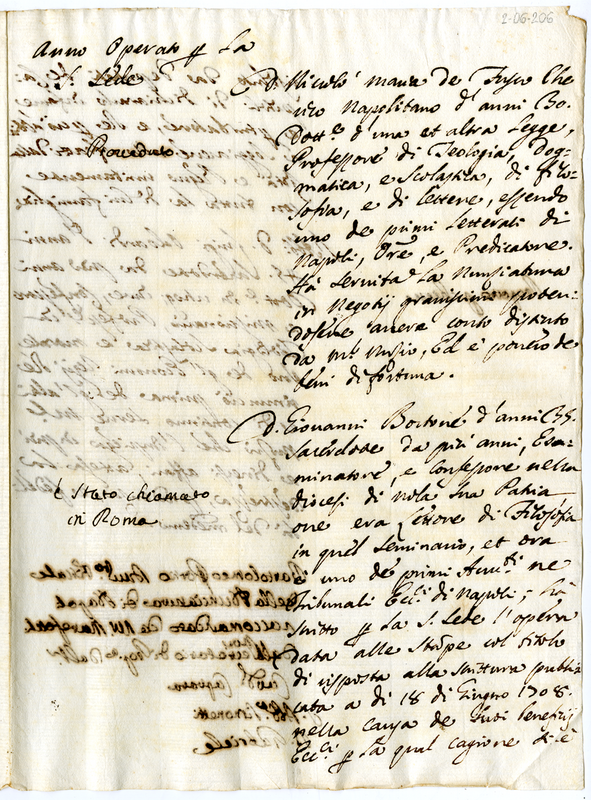 2-06-206
Anno Operato p La
S. Sede
Proveduto
D. Niccolò maria de Fusco Che
rico Napolitano d'anni 80.
Dott.e d'una et altra Legge,
Professore di Teologia Dog-
matica, e Scolastica, di filo-
sofia, e di lettere, essendo
uno de primi Letterati di
Napoli, Ore, e Predicatore.
Ha servita La Nunziatura
in Negotij gravissimi
dosene aveva conto distinto
da Mr Nunzio, Ed è povero de
beni di fortuna.
D. Giovanni Bortone d'anni
Sacerdote da più anni, Esa-
minatore, e Confessore nella
diocesi di Nola sua Patria
one era Lettore di Filosofia
in quel Seminario, et ora
è uno de primi Avv.ti ne
Tribunali Ecc.i di Napoli; hà
scritto p la S. Sede l'opera
data alle stape col titolo
di risposta alla scrittura publi
cata a di 18 di Giugno 1708.
nella causa de Frutti beneficij
Ecc.ci p la qual cagione
è Stato chiamato
in Roma